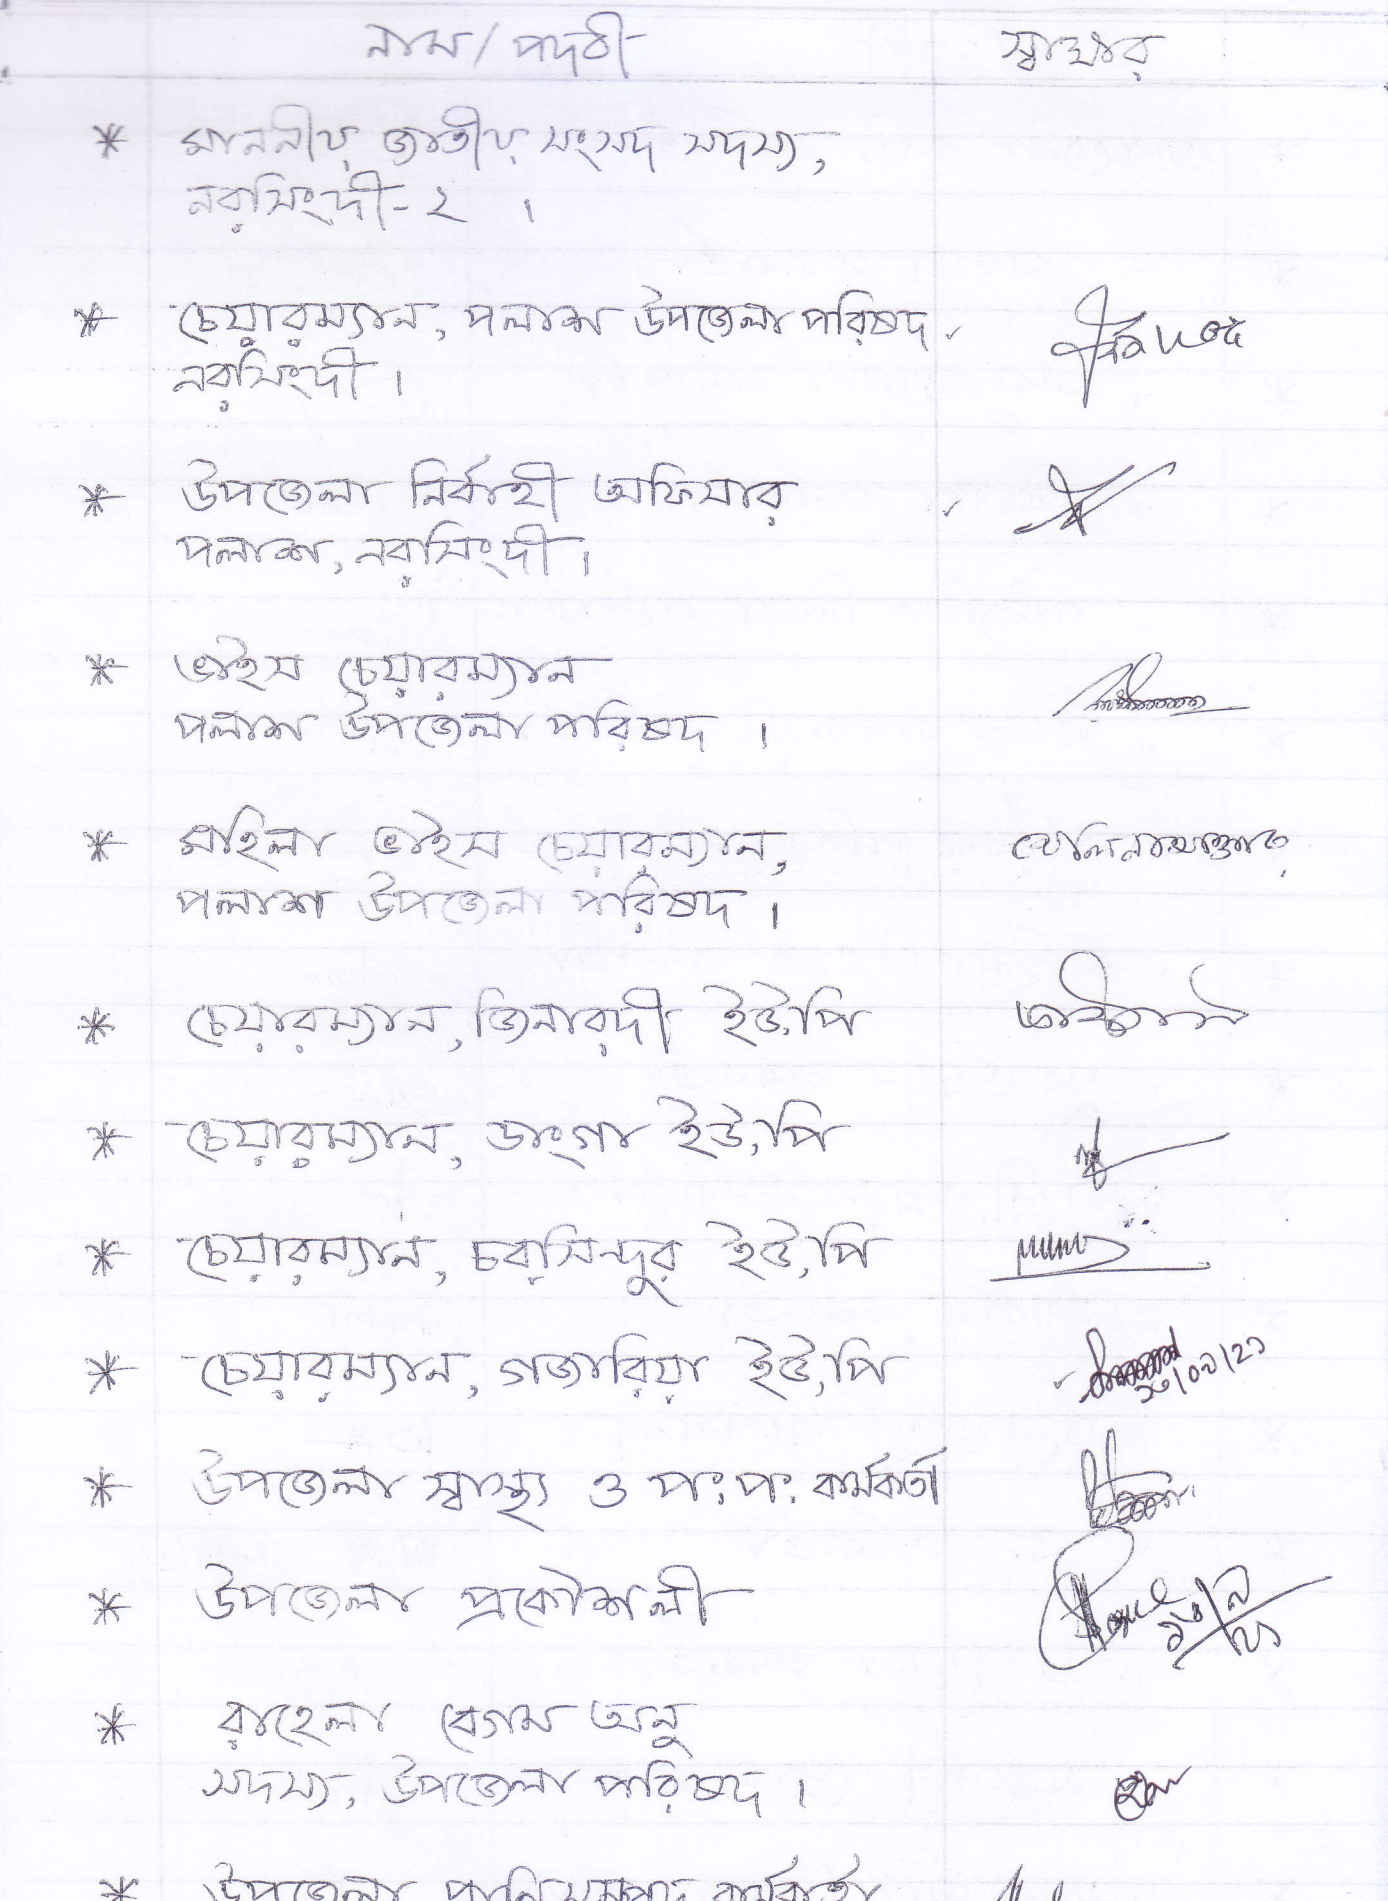 নাম / পদবী স্বাক্ষর
* মাননীয় জাতীয় সংসদ সদস্য,
নরসিংদী- ২ ।
* চেয়ারম্যান, পলাশ উপজেলা পরিষদ
নরসিংদী ।
* উপজেলা নির্বাহী অফিসার
পলাশ, নরসিংদী ।
* ভাইস চেয়ারম্যান
পলাশ উপজেলা পরিষদ ।
* মহিলা ভাইস চেয়ারম্যান,
পলাশ উপজেলা পরিষদ ।
* চেয়ারম্যান, জিনারদী ইউ,পি
* চেয়ারম্যান, ডাংগা ইউ,পি
* চেয়ারম্যান, চরসিন্দুর ইউ,পি
* চেয়ারম্যান, গজারিয়া ইউ,পি
* উপজেলা স্বাস্থ্য ও প.প. কর্মকর্তা
* উপজেলা প্রকৌশলী
* রাহেলা বেগম অনু
সদস্য, উপজেলা পরিষদ ।
* উপজেলা পানি সম্পদ কর্মকর্তা